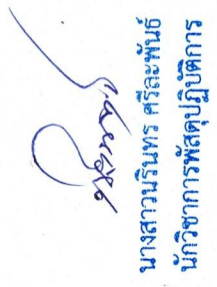 นางสาวนรินทร ศรีละพันธ์
นักวิชาการพัสดุปฏิบัติการ